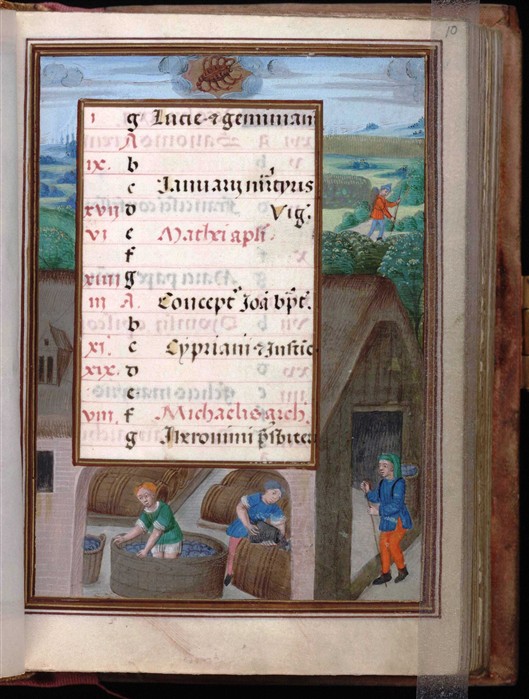 10
i g Lucie ⁊ geminiani
A
ix. b
c Januarij mr̃tyris
xvij d Vig.
vi e Mathei apl̃i.
f
xiiij g
iii A. Concept Joh̃ bp̃t.
b
xi. c Cypriani ⁊ Justi
xix. d
e
viij. f Michaelis arch.
g Iheronimi p̃sbite